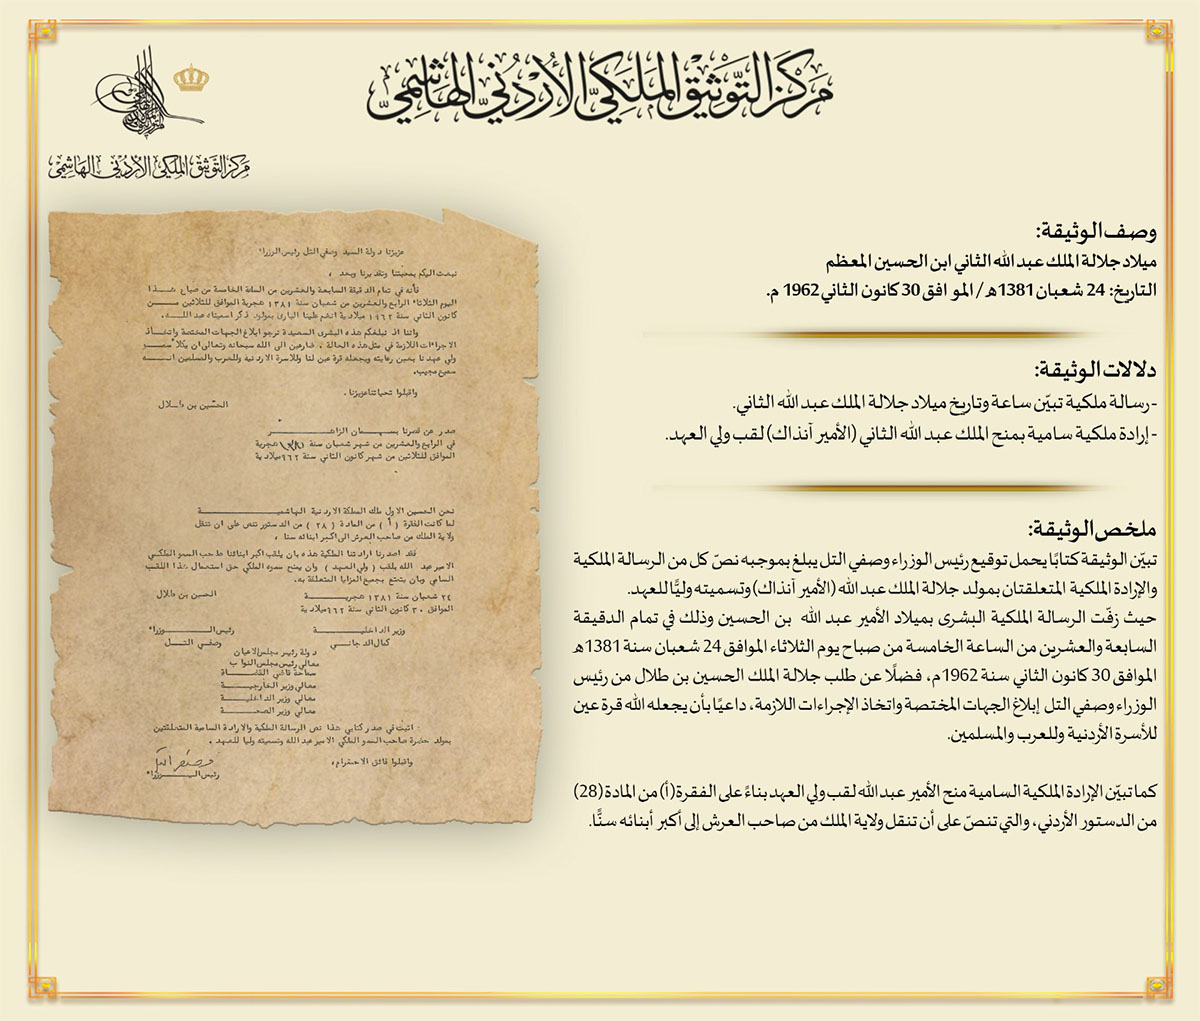 مركز التوثيق الملكي الأردني الهاشمي
مركز التوثيق الملكي الأردني الهاشمي
وصف الوثيقة:
ميلاد جلالة الملك عبد الله الثاني ابن الحسين المعظم
التاريخ: 24 شعبان 1381هـ / الموافق 30 كانون الثاني 1962 م.
دلالات الوثيقة:
-رسالة ملكية تبيّن ساعة وتاريخ ميلاد جلالة الملك عبد الله الثاني.
- إرادة ملكية سامية بمنح الملك عبد الله الثاني (الأمير آنذاك) لقب ولي العهد.
ملخص الوثيقة:
تبيّن الوثيقة كتابًا يحمل توقيع رئيس الوزراء وصفي التل يبلغ بموجبه نصّ كل من الرسالة الملكية
والإرادة الملكية المتعلقتان بمولد جلالة الملك عبد الله (الأمير آنذاك) وتسميته وليًّا للعهد.
حيث زفّت الرسالة الملكية البشرى بميلاد الأمير عبد الله بن الحسين وذلك في تمام الدقيقة
السابعة والعشرين من الساعة الخامسة من صباح يوم الثلاثاء الموافق 24 شعبان سنة 1381هـ
الموافق 30 كانون الثاني سنة 1962م، فضلًا عن طلب جلالة الملك الحسين بن طلال من رئيس
الوزراء وصفي التل إبلاغ الجهات المختصة واتخاذ الإجراءات اللازمة، داعيًا بأن يجعله الله قرة عين
للأسرة الأردنية وللعرب والمسلمين.
كما تبيّن الإرادة الملكية السامية منح الأمير عبد الله لقب ولي العهد بناءً على الفقرة (أ) من المادة (28)
من الدستور الأردني، والتي تنصّ على أن تنقل ولاية الملك من صاحب العرش إلى أكبر أبنائه سنًّا.
عزيزنا دولة السيد وصفي التل رئيس الوزراء
نبعث اليكم بمحبتنا وتقديرنا وبعد ،
فأنه في تمام الدقيقة السابعة والعشرين من الساعة الخامسة من صباح هذا
اليوم الثلاثاء الرابع والعشرين من شعبان سنة ١٣٨١ هجرية الموافق للثلاثين من
كانون الثاني سنة ١٩٦٢ ميلادية انعم علينا الباري بمولود ذكر اسميناه عبد الله.
واننا اذ نبلغكم هذه البشرى السعيدة نرجو ابلاغ الجهات المختصة واتخاذ
الاجراءات اللازمة في مثل هذه الحالة ، ضارعين الى الله سبحانه وتعالى ان يكلأ سمو
ولي عهدنا بعين رعايته ويجعله قرة عين لنا وللاسرة الاردنية وللعرب والمسلمين انه
سميع مجيب.
واقبلوا تحياتنا عزيزنا .
الحسين بن طلال
صدر عن قصرنا بسمان الزاهر
في الرابع والعشرين من شهر شعبان سنة ١٣٨١ هجرية
الموافق للثلاثين من شهر كانون الثاني سنة ١٩٦٢ ميلادية
نحن الحسين الاول ملك المملكة الاردنية الهاشمية
لما كانت الفقرة ( أ ) من المادة ( ٢٨ ) من الدستور تنص على ان تنتقل
ولاية الملك من صاحب العرش الى اكبر ابنائه سنا ،
فقد اصدرنا ارادتنا الملكية هذه بان يلقب اكبر ابنائنا صاحب السمو الملكي
الامير عبد الله بلقب ( ولي العهد ) وان يمنح سموه الملكي حق استعمال هذا اللقب
السامي وبان يتمتع بجميع المزايا المتعلقة به.
٢٤ شعبان سنة ١٣٨١ هجرية
الحسين بن طلال
الموافق ٣٠ كانون الثاني سنة ١٩٦٢ ميلادية
وزير الداخلية
رئيس الوزراء
كمال الدجاني
وصفي التل
دولة رئيس مجلس الاعيان
معالي رئيس مجلس النواب
سماحة قاضي القضاة
معالي وزير الخارجية
معالي وزير الداخلية
معالي وزير الصحة
اثبت في صدر كتابي هذا نص الرسالة الملكية والارادة السامية المتعلقتين
بمولد حضرة صاحب السمو الملكي الامير عبد الله وتسميته وليا للعهد .
واقبلوا فائق الاحترام ،
وصفي التل
رئيس الوزراء